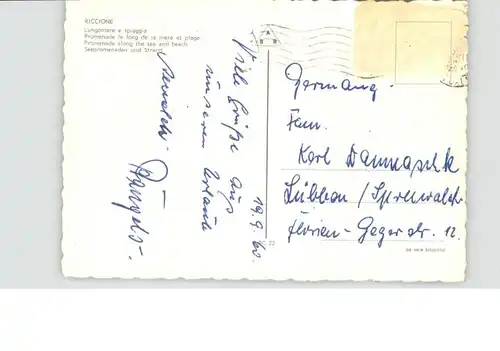 RICCIONE
Lungomare e spiaggia
Promenade le long de la mere et plage
Promenade along the sea and beach
Seepromenaden und Strand
19.9.60.
Viele Grüße aus
unserem Urlaub
Germany.
Fam.
Karl
Lübben / Spreewald
Florian-Geyer str. 12.
22